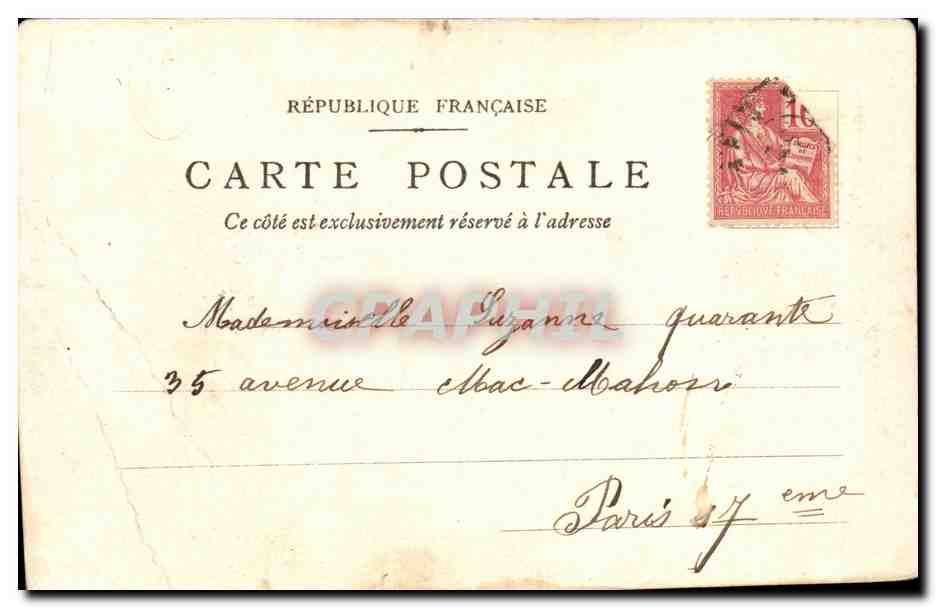 RÉPUBLIQUE FRANÇAISE
CARTE POSTALE
Ce côté est exclusivement réservé à l'adresse
10
REPUBLIQUE FRANÇAISE
GRAPHIL
Mademoiselle Suzanne Quarante
35 avenue Mac-Mahon
Paris 17 eme